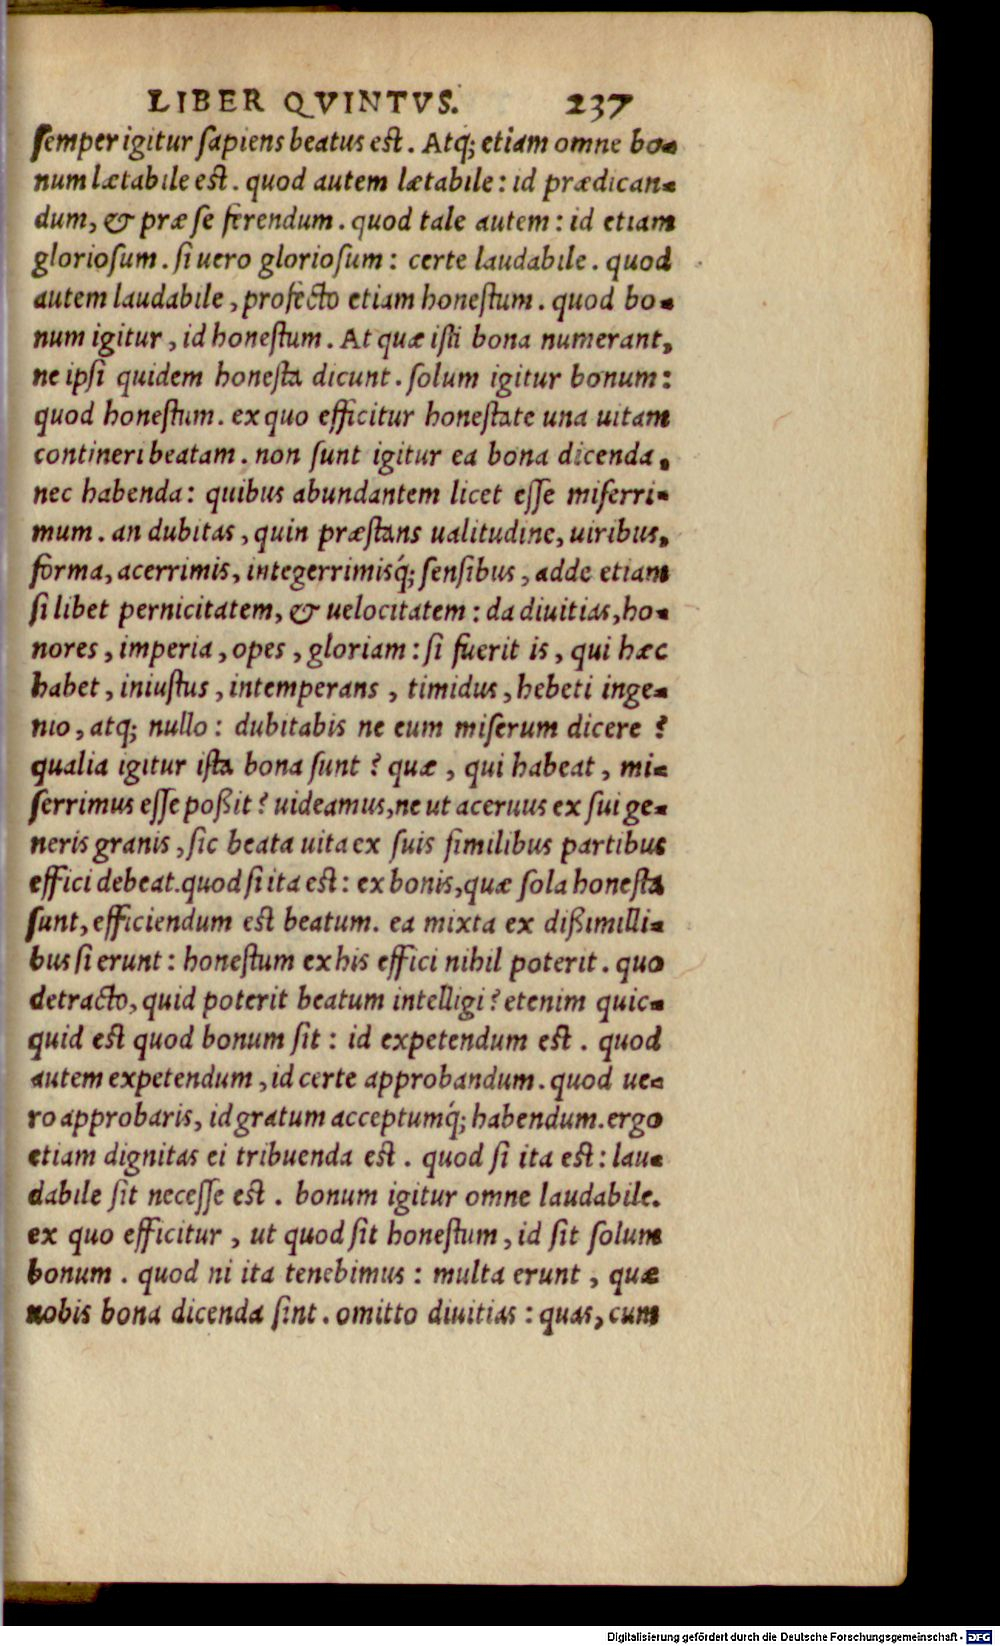 LIBER QVINTVS. 237
semper igitur sapiens beatus est. Atq; etiam omne bo-
num lætabile est. quod autem lætabile: id prædican-
dum, & præ se ferendum. quod tale autem: id etiam
gloriosum. si uero gloriosum: certe laudabile. quod
autem laudabile, profecto etiam honestum. quod bo-
num igitur, id honestum. At quæ isti bona numerant,
ne ipsi quidem honesta dicunt. solum igitur bonum:
quod honestum. ex quo efficitur honestate una uitam
contineri beatam. non sunt igitur ea bona dicenda,
nec habenda: quibus abundantem licet esse miserri-
mum. an dubitas, quin præstans ualitudine, uiribus,
forma, acerrimis, integerrimisq́; sensibus, adde etiam
si libet pernicitatem, & uelocitatem: da diuitias, ho-
nores, imperia, opes, gloriam: si fuerit is, qui hæc
habet, iniustus, intemperans, timidus, hebeti inge-
nio, atq; nullo: dubitabis ne eum miserum dicere?
qualia igitur ista bona sunt? quæ, qui habeat, mi-
serrimus esse poßit? uideamus, ne ut aceruus ex sui ge-
neris granis, sic beata uita ex suis similibus partibus
effici debeat. quod si ita est: ex bonis, quæ sola honesta
sunt, efficiendum est beatum. ea mixta ex dißimilli-
bus si erunt: honestum ex his effici nihil poterit. quo
detracto, quid poterit beatum intelligi? etenim quic-
quid est quod bonum sit: id expetendum est. quod
autem expetendum, id certe approbandum. quod ue-
ro approbaris, id gratum acceptumq́; habendum. ergo
etiam dignitas ei tribuenda est. quod si ita est: lau-
dabile sit necesse est. bonum igitur omne laudabile.
ex quo efficitur, ut quod sit honestum, id sit solum
bonum. quod ni ita tenebimus: multa erunt, quæ
nobis bona dicenda sint. omitto diuitias: quas, cum
Digitalisierung gefördert durch die Deutsche Forschungsgemeinschaft - DFG